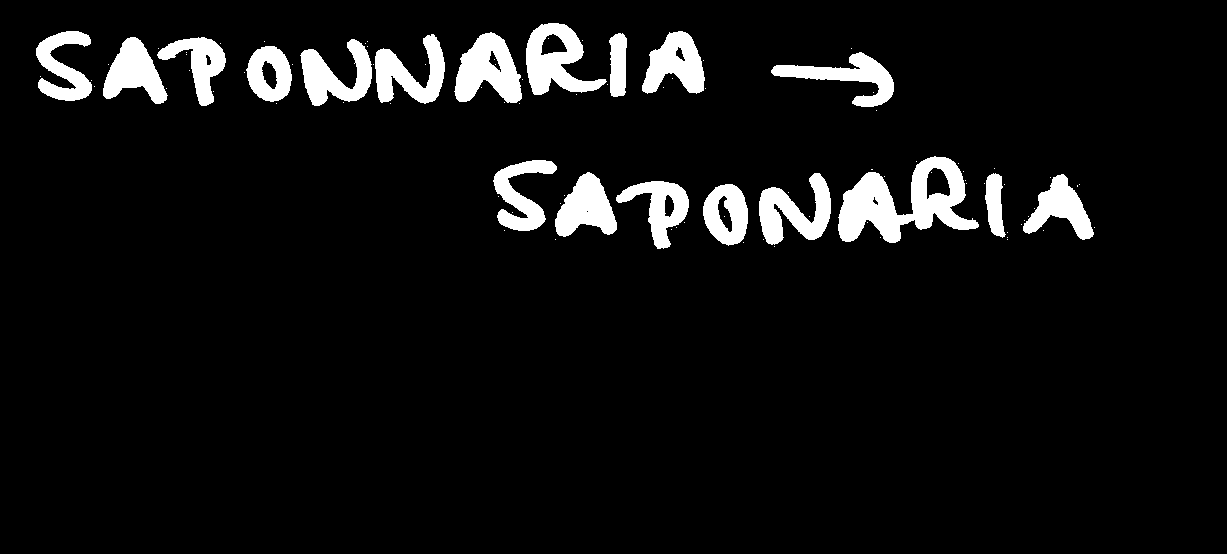 SAPONNARIA →
SAPONARIA